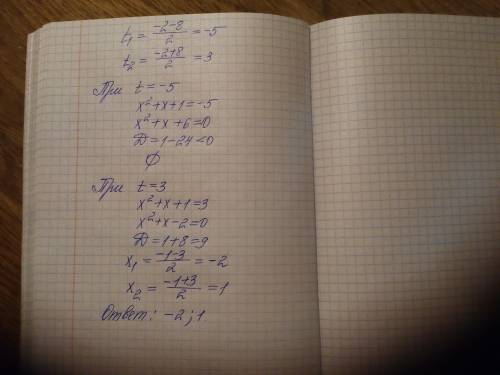 t₁ = (-2-8)/2 = -5
t₂ = (-2+8)/2 = 3
При t = -5
x²+x+1=-5
x²+x+6=0
D=1-24<0
∅
При t=3
x²+x+1=3
x²+x-2=0
D=1+8=9
x₁ = (-1-3)/2 = -2
x₂ = (-1+3)/2 = 1
Ответ: -2;1